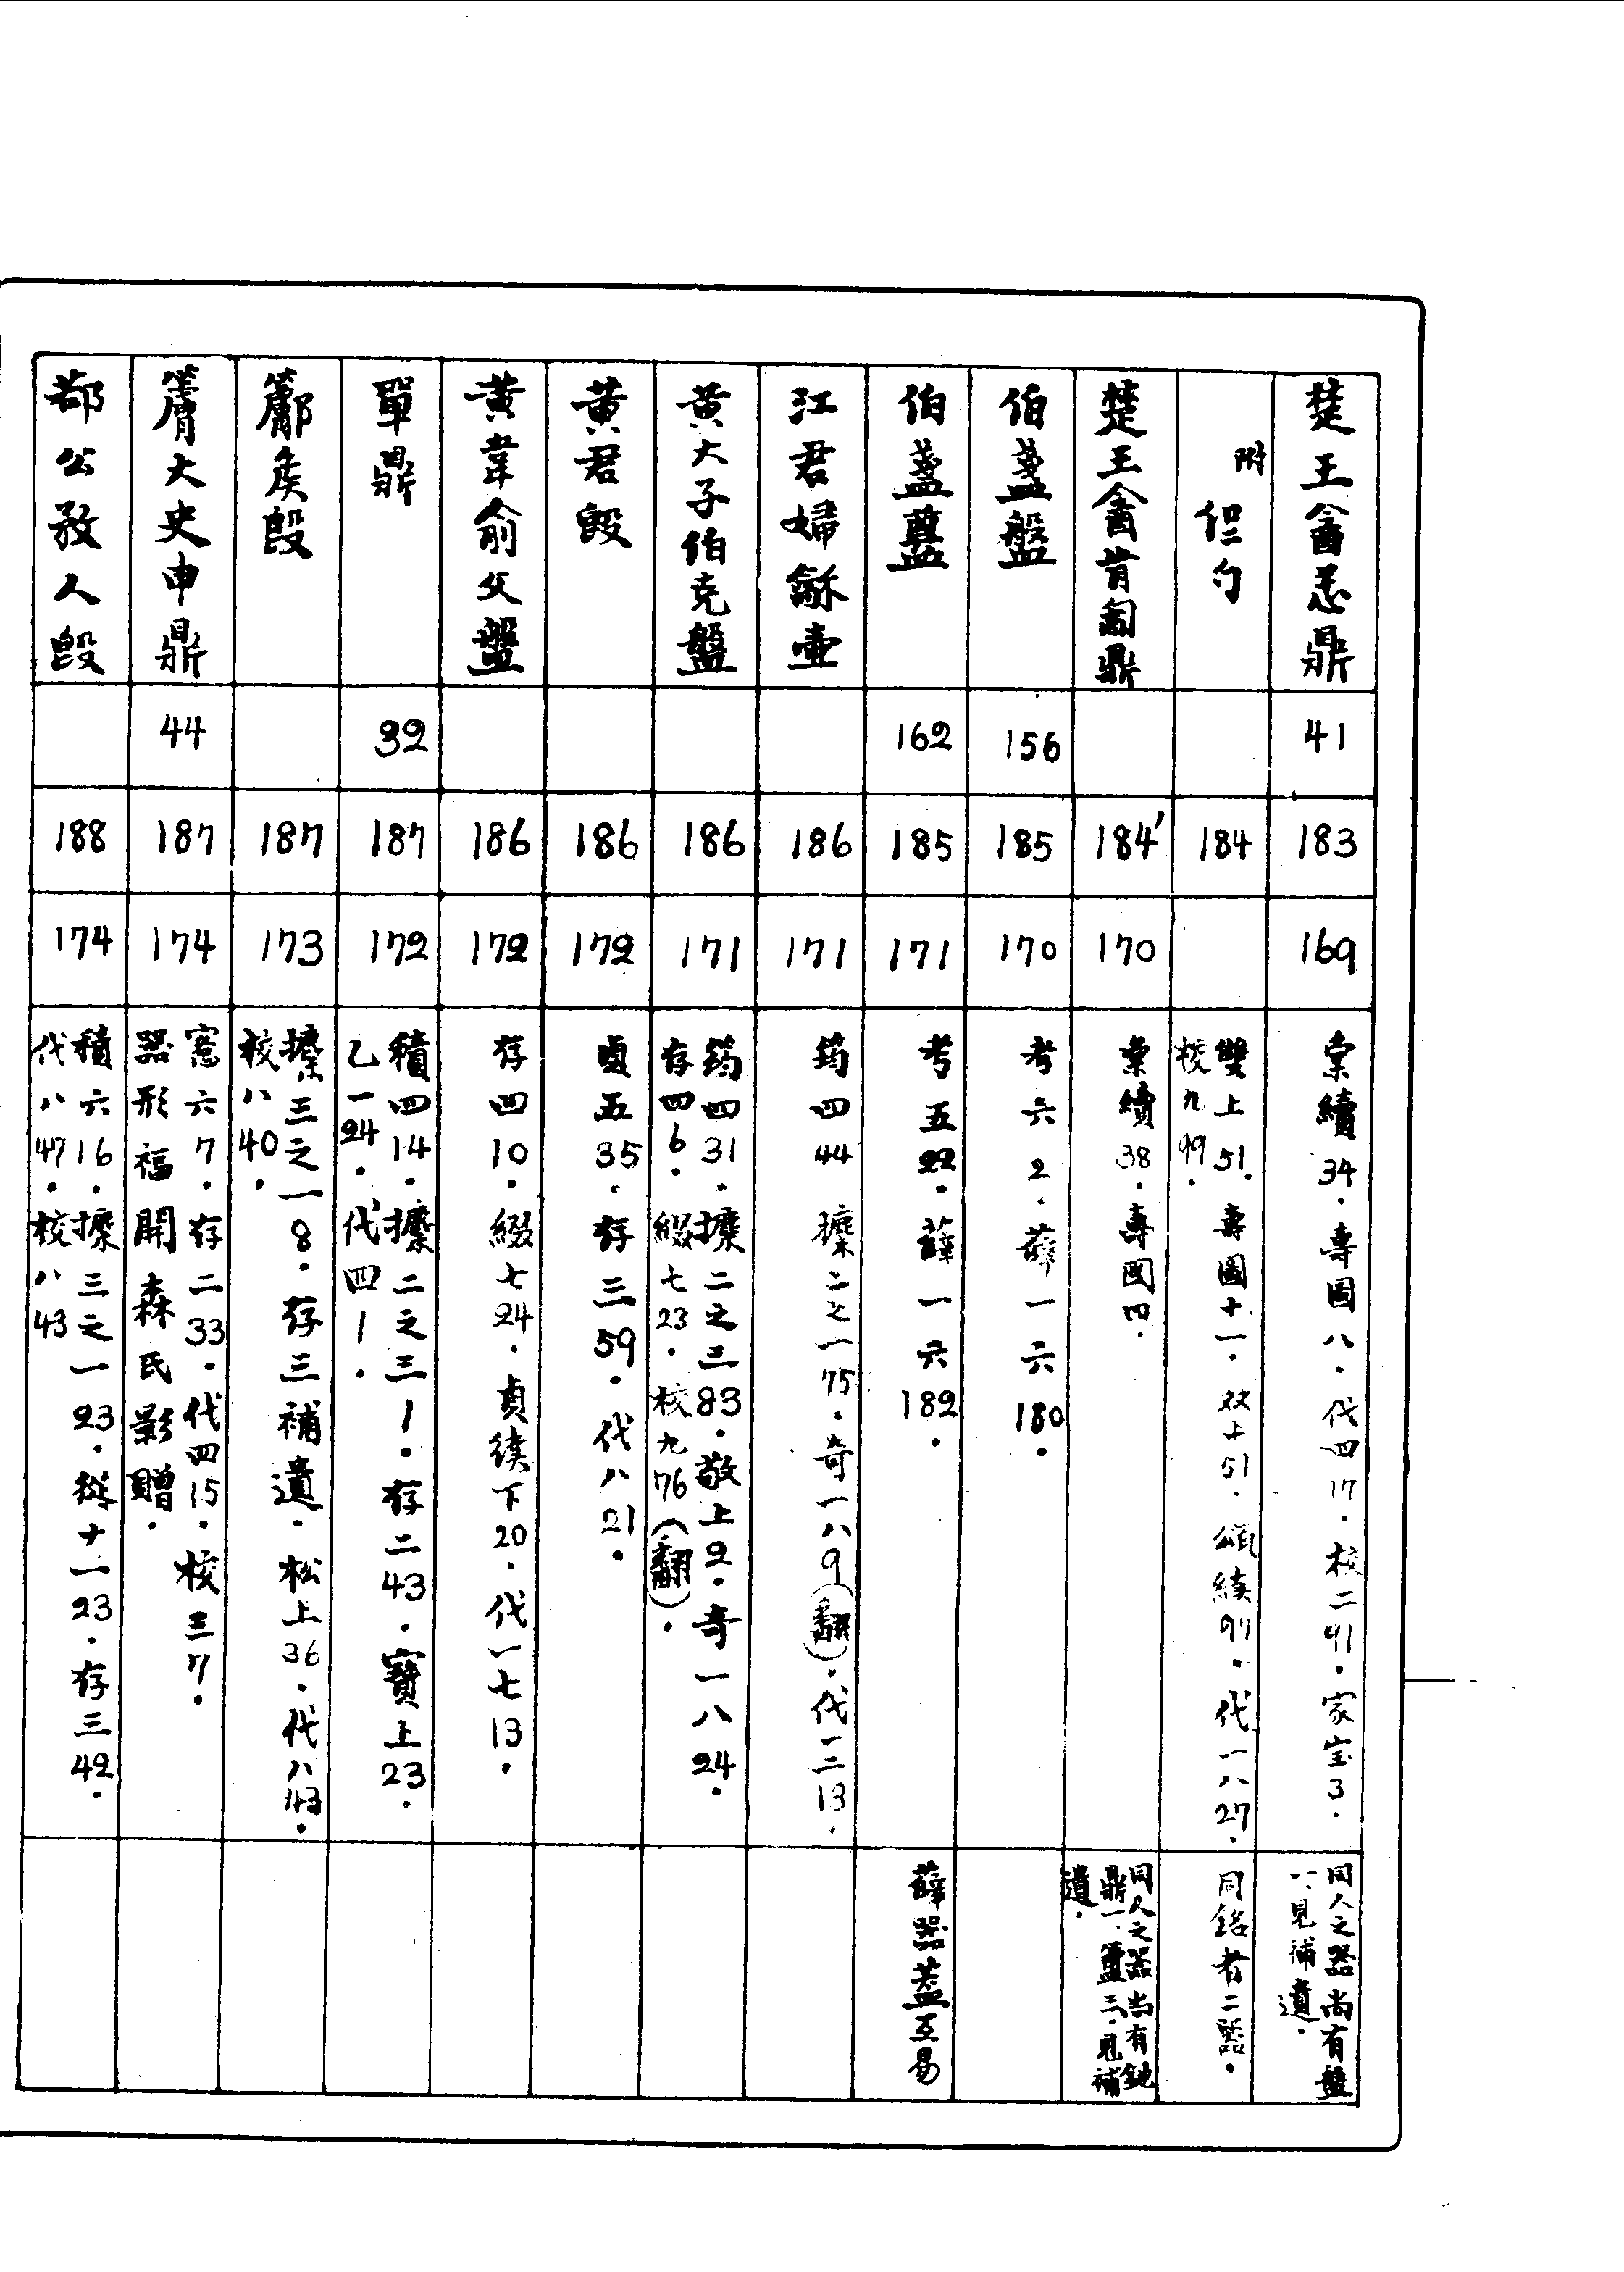 楚王酓忎鼎
41
183
169
彙續34．專圖八．代四17．校二91．家宝3．
同人之器尚有盤
一、見補遺．
附 但勺
184
雙上51．專圖十一．双上51．頌續97．代一八27．
校九99．
同銘者二器．
楚王酓肯匜鼎
184'
170
彙續38．專圖四．
同人之器尚有鉈
鼎一．簠三．見補
遺．
伯盞盤
156
185
170
考六2．薛一六180．
伯盞
162
185
171
考五22．薛一六182．
薛器蓋互易
江君婦龢壺
186
171
筠四44 攈二之一75．奇一八9(翻)．代一二13．
黃大子伯克盤
186
171
筠四31．攈二之三83．敬上2．奇一八24．
存四6．綴七23．校九76(翻)．
黃君𣪘
186
172
貞五35．存三59．代八21．
黃韋俞父盤
186
172
存四10．綴七24．貞續下20．代一七13．
單鼎
32
187
172
積四14．攈二之三1．存二43．寶上23．
乙一24．代四1．
鄺侯𣪘
187
173
攈三之一8．存三補遺．松上36．代八43．
校八40．
大史申鼎
44
187
174
窓六7．存二33．代四15．校三7．
器形福開森氏影贈．
鄀公敄人𣪘
188
174
積六16．攈三之一23．從十一23．存三42．
代八47．校八43